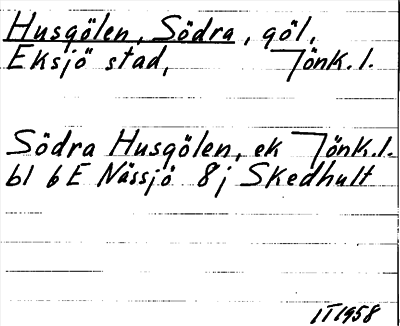 Husgölen, Södra, göl,
Eksjö stad, Jönk. l.
Södra Husgölen, ek Jönk. l.
bl 6E Nässjö 8j Skedhult
IT1958